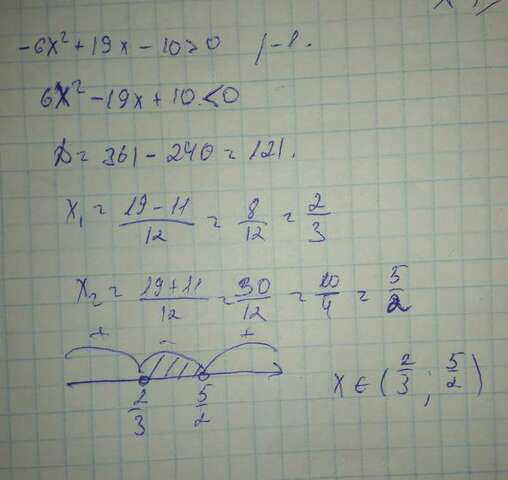 -6x² + 19x - 10 > 0 /-1.
6x² - 19x + 10 < 0
D = 361 - 240 = 121.
x₁ = (19 - 11)/12 = 8/12 = 2/3
x₂ = (19 + 11)/12 = 30/12 = 10/4 = 5/2
+ - +
2/3 5/2 x ∈ (2/3 ; 5/2)